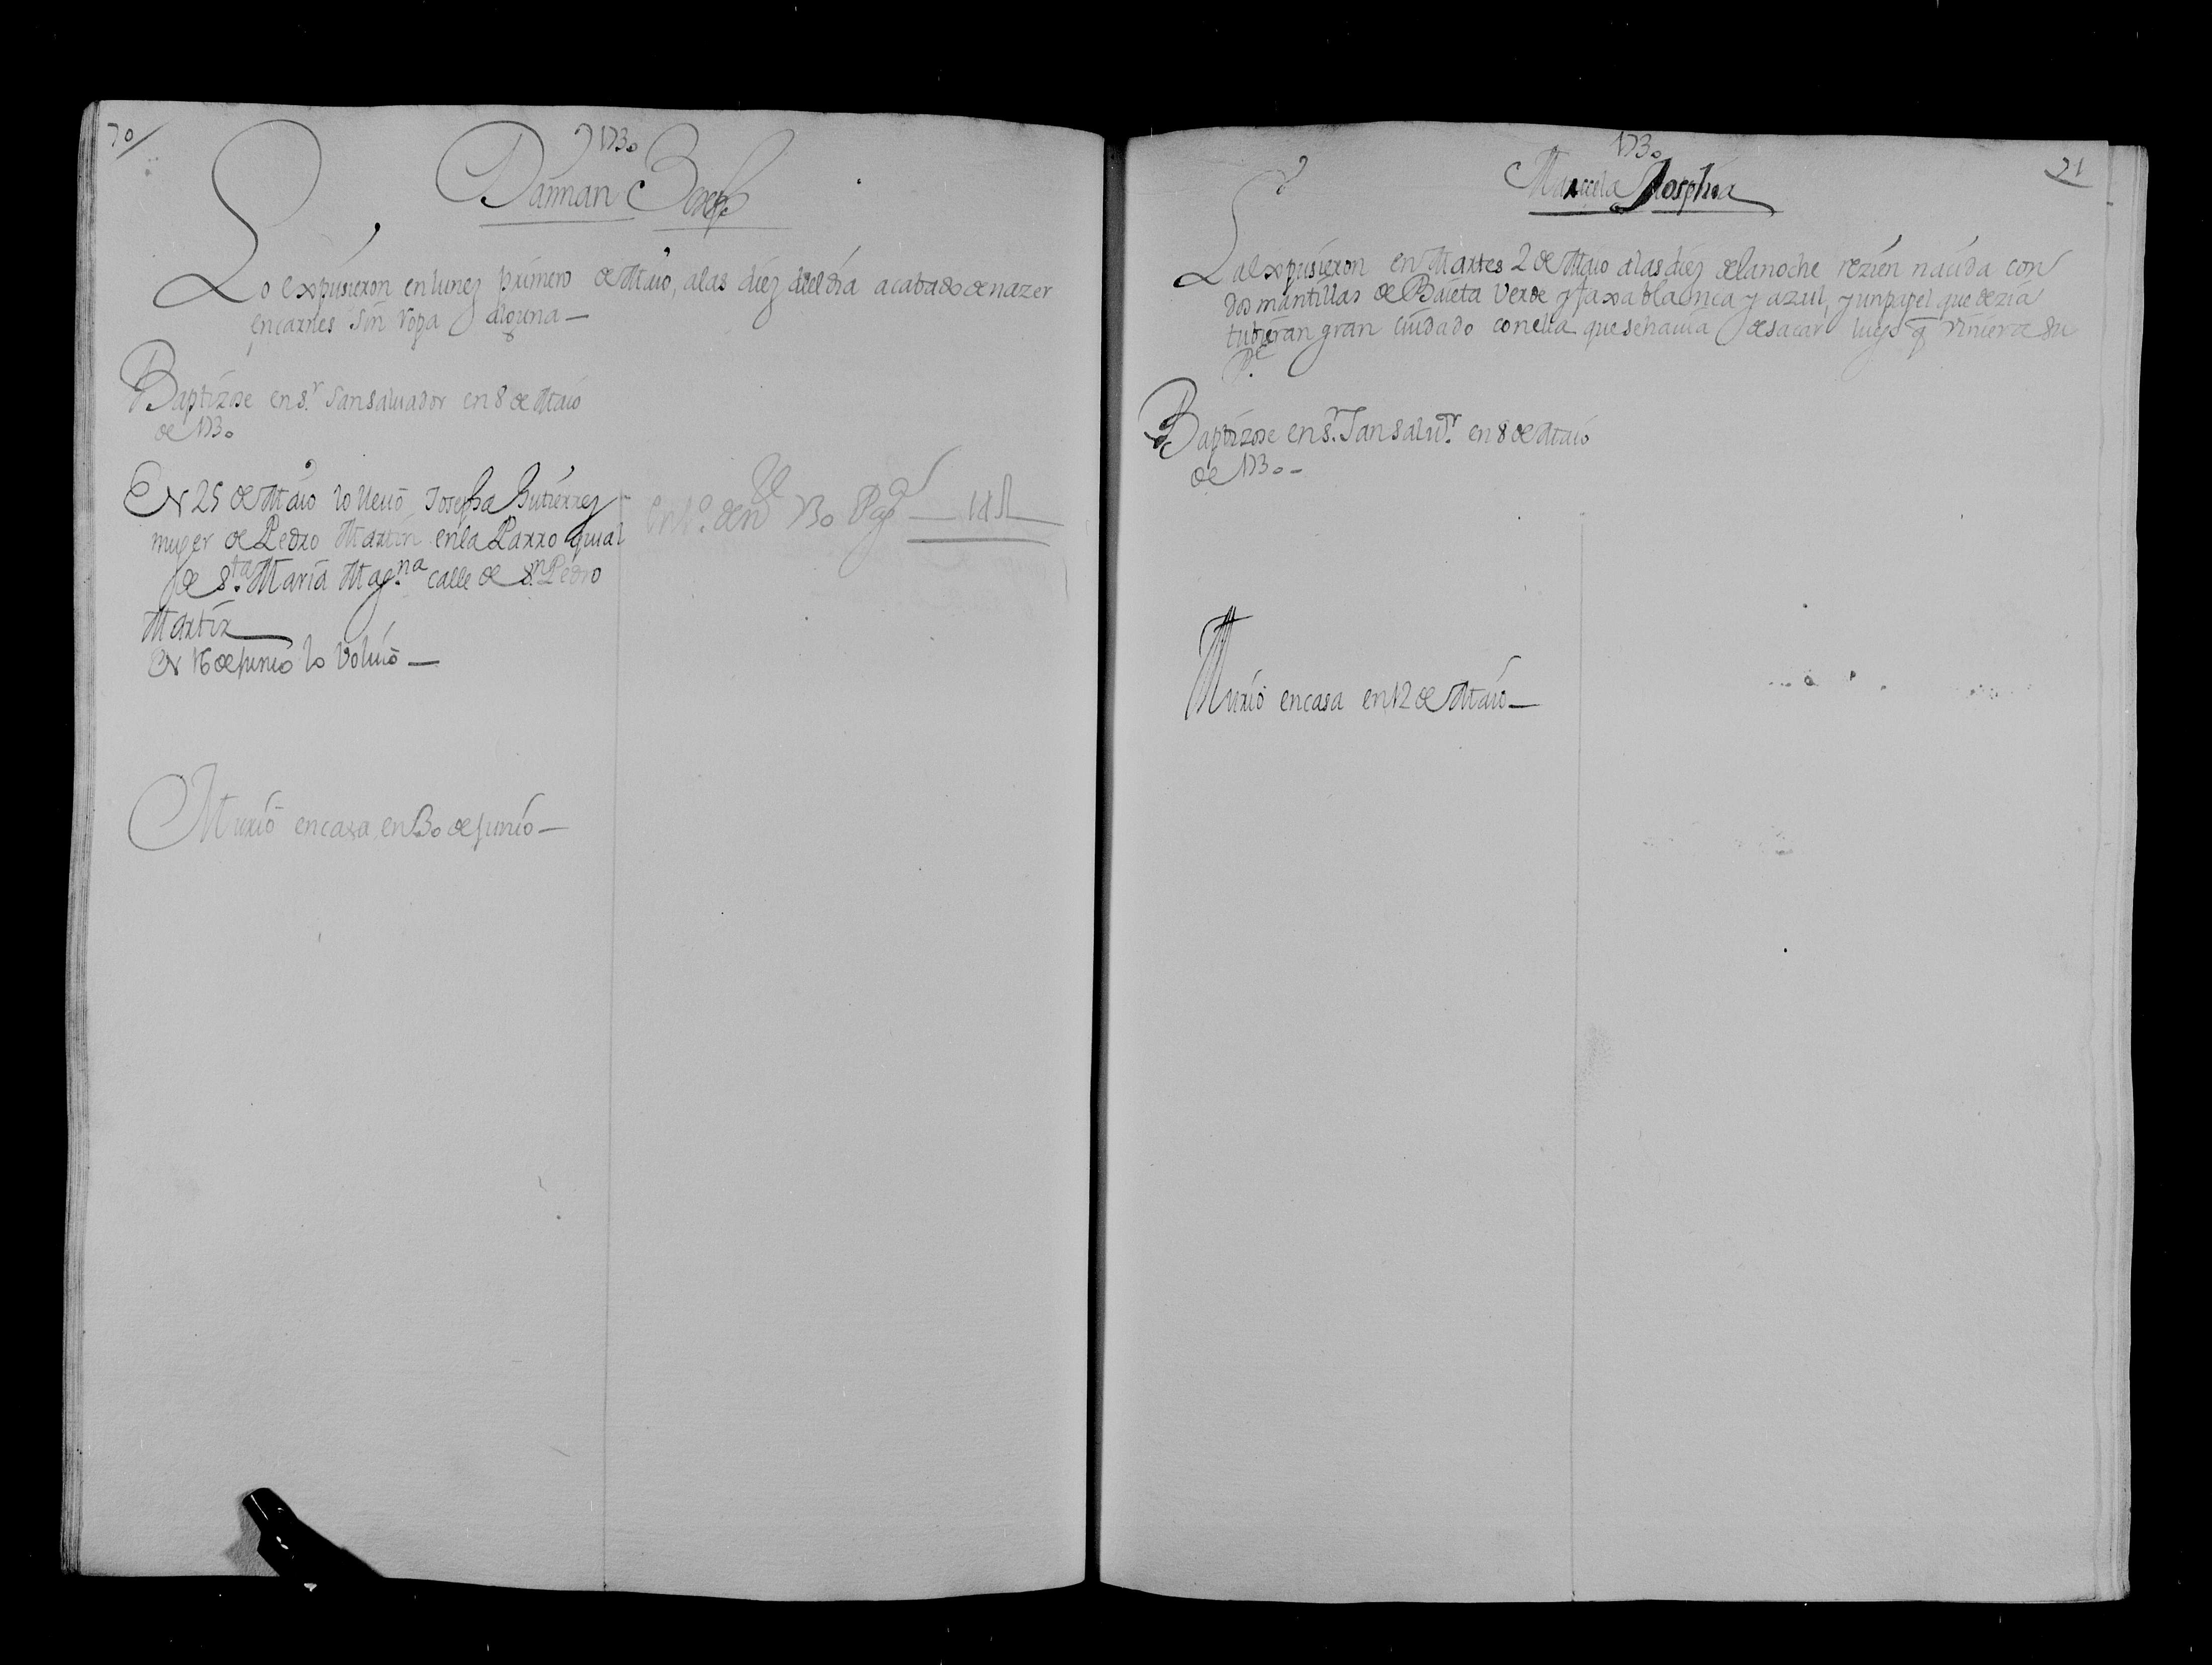 70/
1730
Damian Joseph
Lo expusieron en lunes primero de Maio, a las diez del dia acabado de nazer
en carnes sin ropa alguna —
Baptizose en Sr. San Saluador en 8 de Maio
de 1730
En 25 de Maio lo lleuó Josepha Gutierrez
muger de Pedro Martin en la Parroquial
de Sta. Maria Magna. calle de Sn. Pedro
Martir
En 16 de Junio lo Voluió —
Murió en casa en 30 de Junio —
1730
71
Marcela Josepha
La expusieron en Martes 2 de Maio a las diez de la noche rezien nacida con
dos mantillas de Baieta Verde y faxa blanca y azul, y un papel que dezia
tubieran gran cuidado con ella que se hauia de sacar luego q viniera su
Pe.
Baptizose en Sr. San Saluor. en 8 de Maio
de 1730 —
Murió en casa en 12 de Maio —